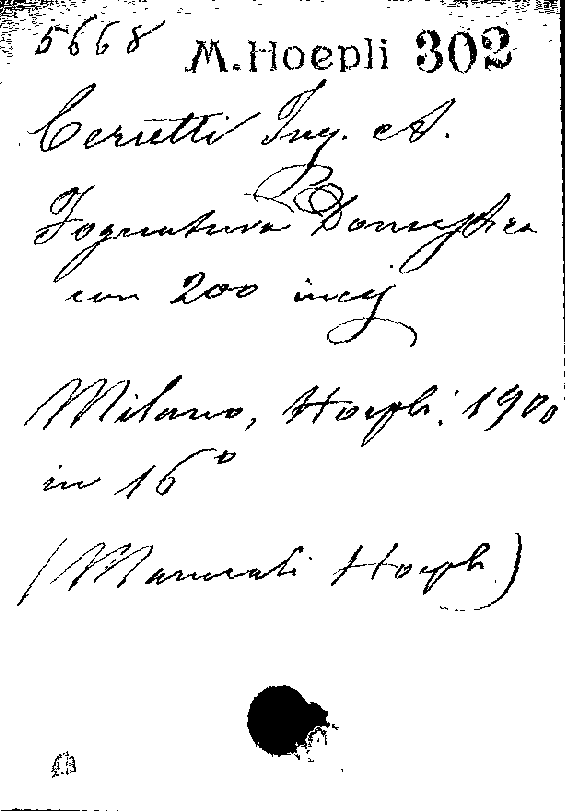 5668 M. Hoepli 302
Cerutti Ing. A.
Fognatura Domestica
con 200 incij
Milano, Hoepli, 1900
in 16°
(Manuali Hoepli)